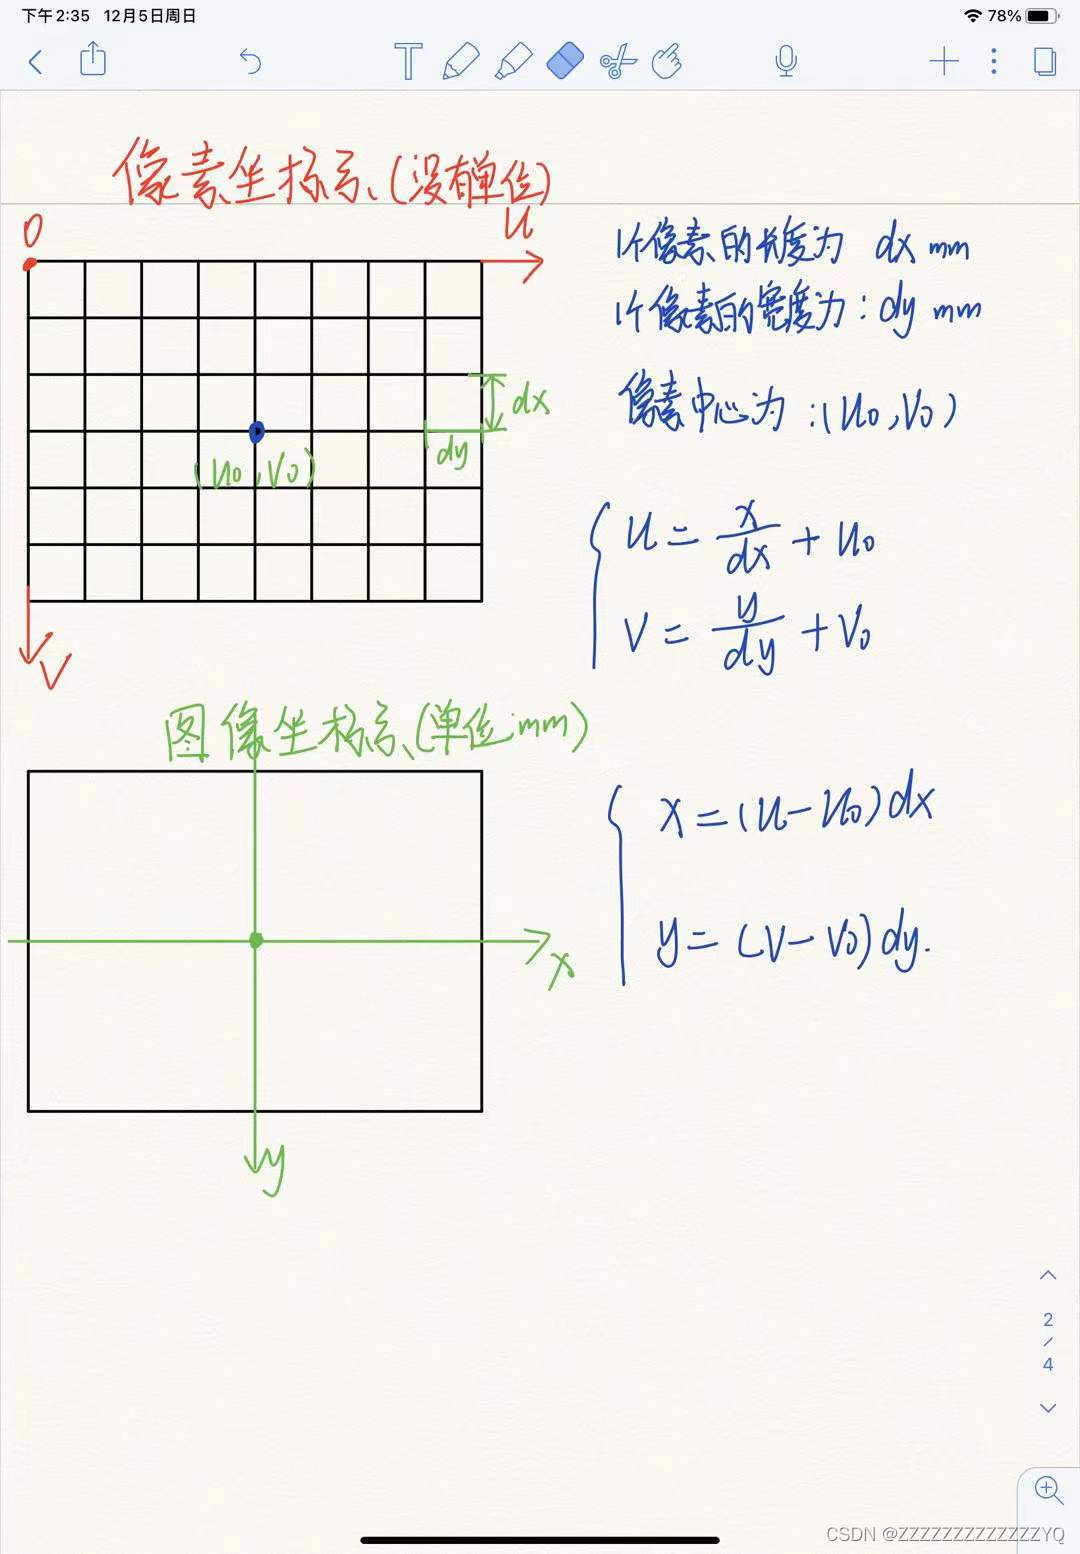 下午2:35 12月5日周日
78%
像素坐标系(没有单位)
O
u
1个像素的长度为 dx mm
1个像素的宽度为:dy mm
像素中心为:(u₀,v₀)
dx
dy
(u₀,v₀)
u = x/dx + u₀
v = y/dy + v₀
v
图像坐标系(单位:mm)
x = (u-u₀)dx
y = (v-v₀)dy.
x
y
2
/
4
CSDN @ZZZZZZZZZZZZZYQ